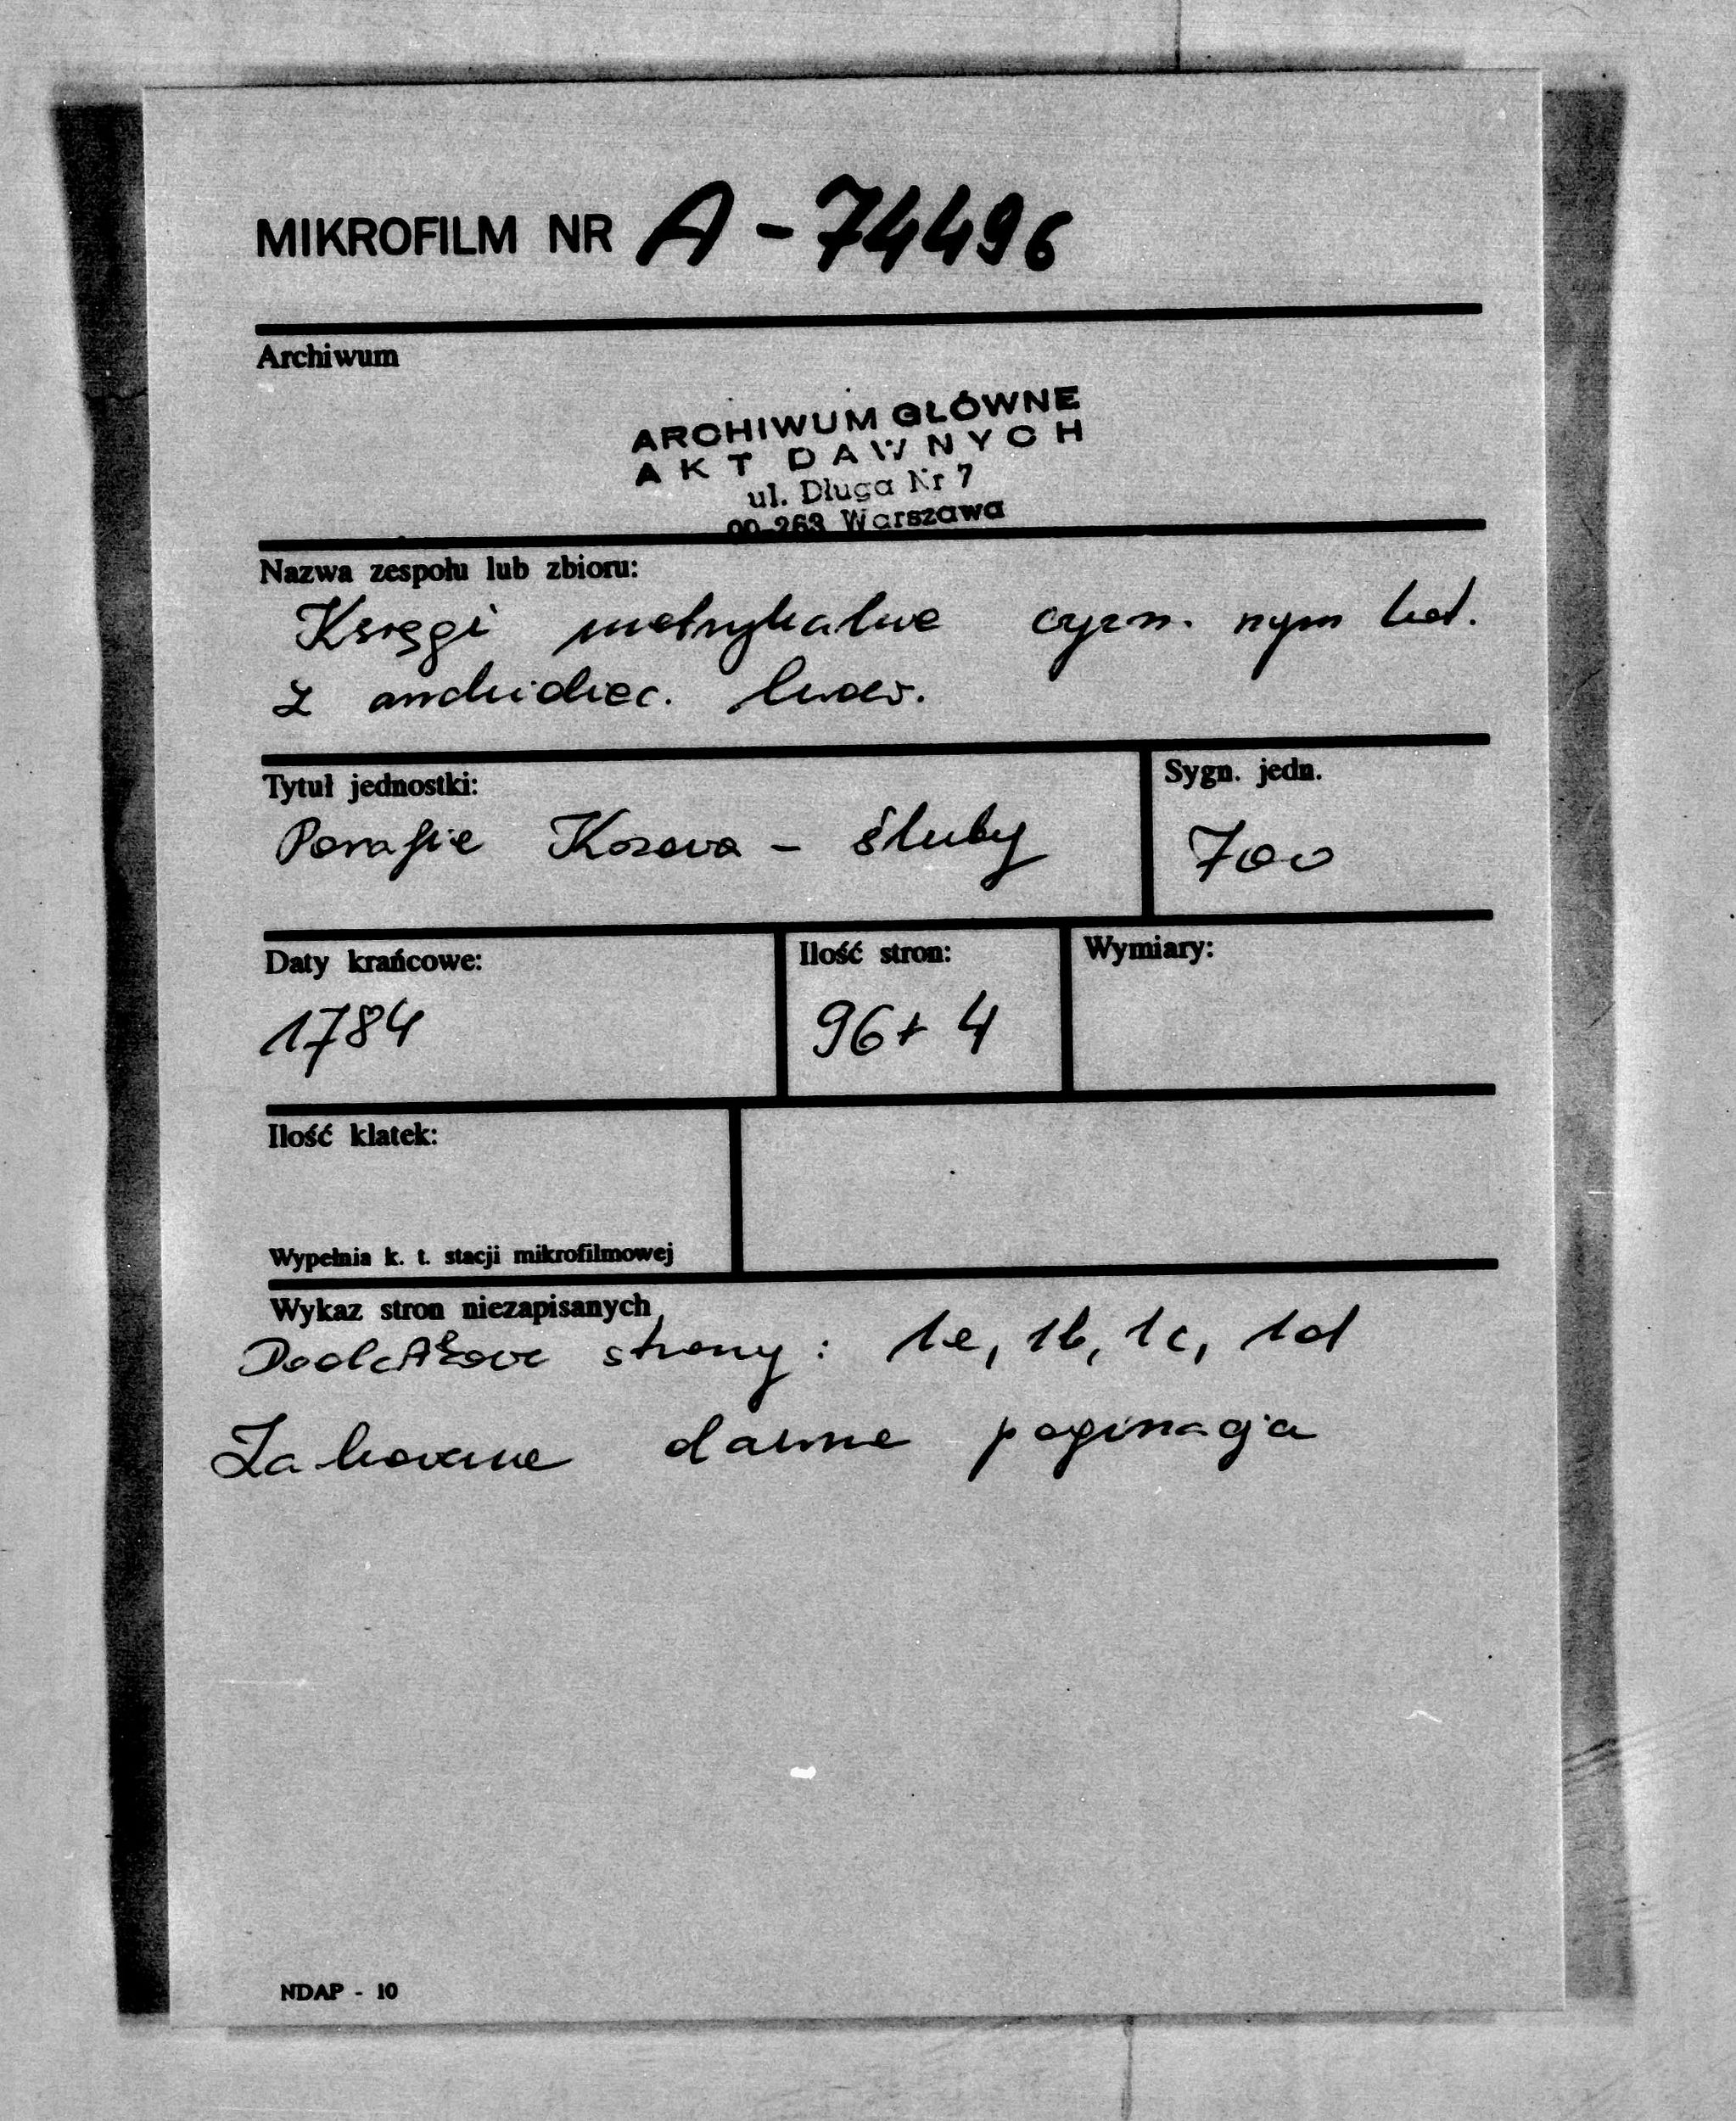 MIKROFILM NR A-74496
Archiwum
ARCHIWUM GŁÓWNE
AKT DAWNYCH
ul. Długa Nr 7
00-263 Warszawa
Nazwa zespołu lub zbioru:
Księgi metrykalne rzym. kat.
z archidiec. lwow.
Tytuł jednostki:
Sygn. jedn.
Parafia Kozowa - śluby
700
Daty krańcowe:
Ilość stron:
Wymiary:
1784
96+4
Ilość klatek:
Wypełnia k. t. stacji mikrofilmowej
Wykaz stron niezapisanych
Dodatkowe strony: 1a, 1b, 1c, 1d
Zachowana dawna paginacja
NDAP - 10